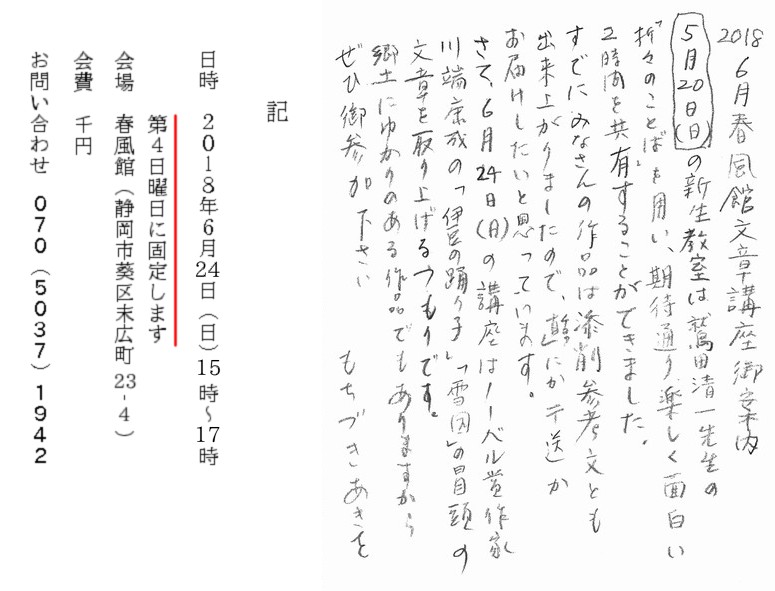 2018 6月春風館文章講座御案内
5月20日(日)の新生教室は鷲田清一先生の
「折々のことば」を用い、期待通り楽しく面白い
2時間を共有することができました。
すでにみなさんの作品は添削参考文とも
出来上がりましたので、にか〒送か
お届けしたいと思っています。
さて、6月24日(日)の講座はノーベル賞作家
川端康成の「伊豆の踊り子」「雪国」の冒頭の
文章を取り上げるつもりです。
郷土にゆかりのある作品でもありますから
ぜひ御参加下さい もちづきあきを
記
日時 2018年6月24日(日)15時~17時
第4日曜日に固定します
会場 春風館(静岡市葵区末広町23-4)
会費 千円
お問い合わせ 070(5037)1942